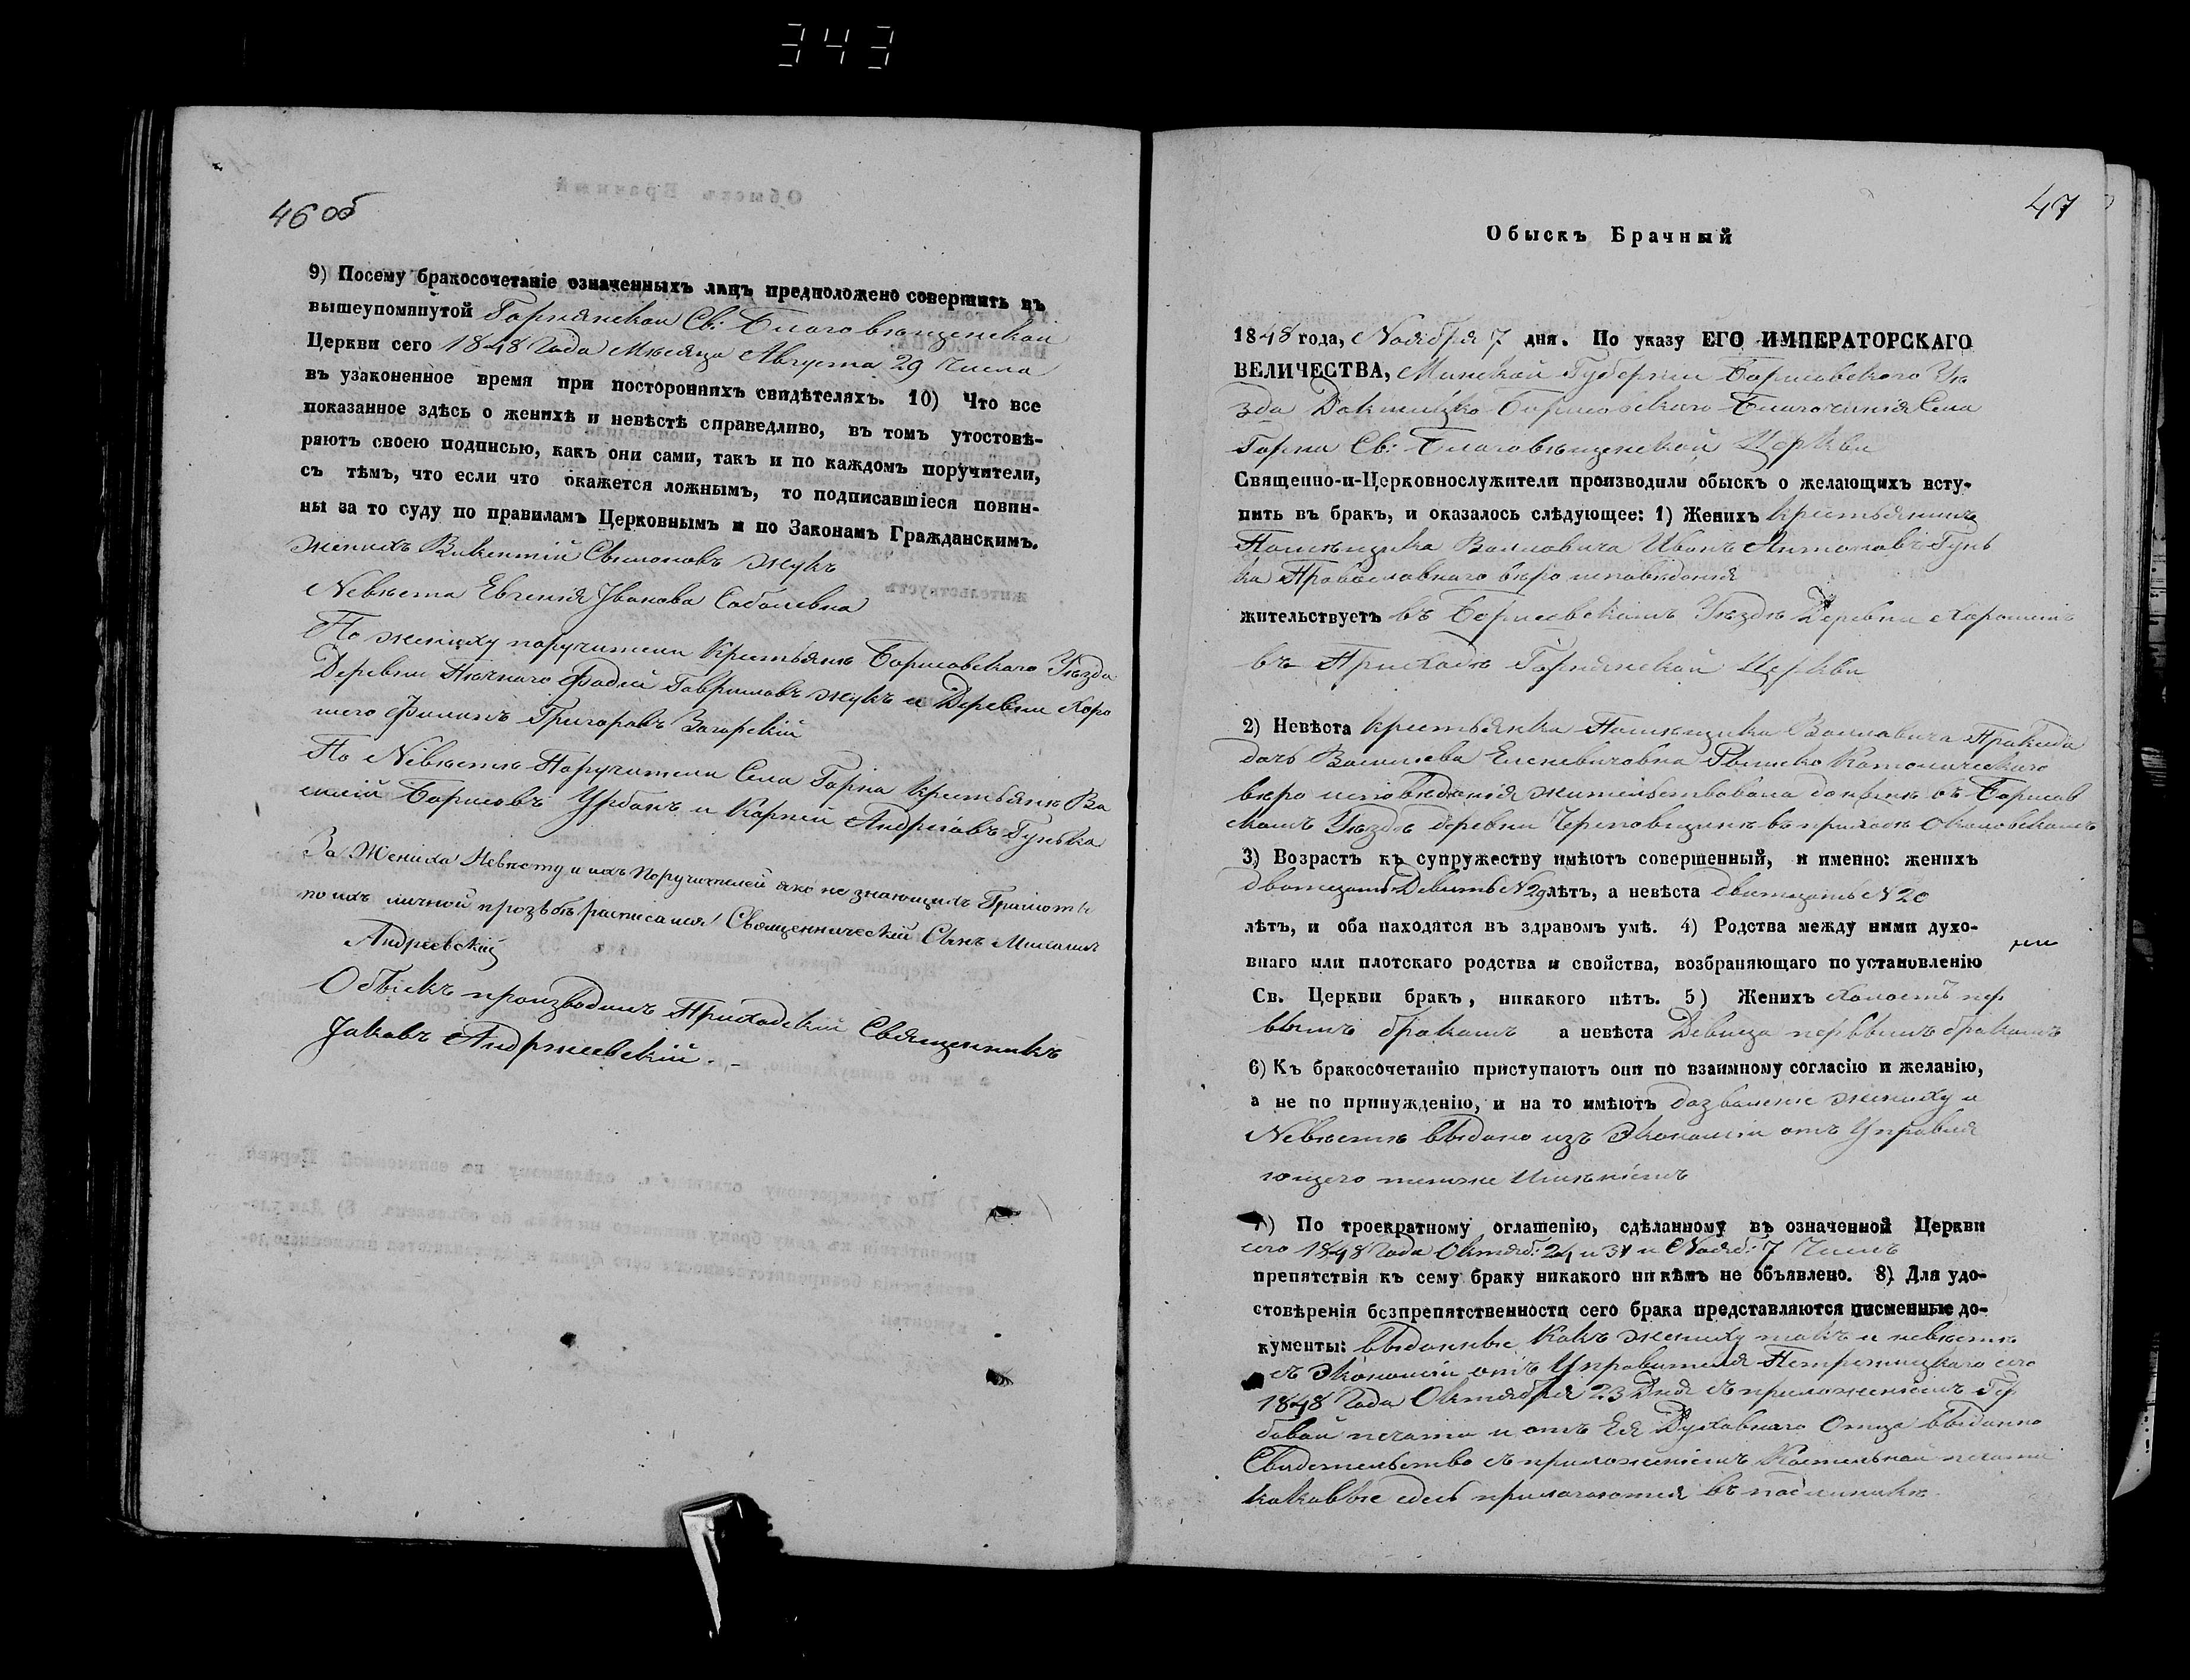 343
46 об
9) Посему бракосочетаніе означенныхъ лицъ предположено совершить въ
вышеупомянутой Горнянской Св: Благовѣщенской
Церкви сего 1848 Года Мѣсяца Августа 29 Числа
въ узаконенное время при постороннихъ свидѣтеляхъ. 10) Что все
показанное здѣсь о женихѣ и невѣстѣ справедливо, въ томъ утостовѣ-
ряютъ своею подписью, какъ они сами, такъ и по каждомъ поручители,
съ тѣмъ, что если что окажется ложнымъ, то подписавшіеся повин-
ны за то суду по правиламъ Церковнымъ и по Законамъ Гражданскимъ.
Женихъ Викентій Сымоновъ Жукъ
Nевѣста Евгенія Јванова Соболевна
По жениху поручители Крестьяне Борисовскаго Уѣзда
Деревни Фадей Гавриловъ Жукъ и Деревни Хоро
шего Филипъ Григоровъ Загорскій
По Nевѣстѣ Поручители Села Горна Крестьяне Ва
силій Борисовъ Урбанъ и Карней Андреевъ Гунька
За Жениха Невѣсту и ихъ Поручителей яко не знающихъ Грамоты
по ихъ личной прозьбѣ расписался Священническій Сынъ
Андреевскій
Обыскъ производилъ Приходскій Священникъ
Јаковъ Андреевскій
47
Обыскъ Брачный
1848 года, Nоября 7 дня. По указу ЕГО ИМПЕРАТОРСКАГО
ВЕЛИЧЕСТВА, Минской Губерніи Борисовского Уѣ
зда Докшицко-Борисовскаго Благочинія Села
Горна Св: Благовѣщенской Церкви
Священно-и-Церковнослужители производили обыскъ о желающихъ всту-
пить въ бракъ, и оказалось слѣдующее: 1) Женихъ крестьянинъ
Помѣщика Воловича Иванъ Антоновъ Гунь
ка Православнаго вѣроисповѣданія
жительствуетъ въ Борисовскомъ Уѣздѣ Деревни Хорошемъ
въ Приходѣ Горнянской Церкви
2) Невѣста крестьянка Помѣщика Воловича Пракседа
дочь Васильева Римско Католическаго
вѣроисповѣданія жительствовала донынѣ въ Борисов
скомъ Уѣздѣ деревни въ приходѣ Околовскомъ
3) Возрастъ къ супружеству имѣютъ совершенный, и именно: женихъ
двотцать Девить N 29 лѣтъ, а невѣста двотцать N 20
лѣтъ, и оба находятся въ здравомъ умѣ. 4) Родства между ними духо-
внаго или плотскаго родства и свойства, возбраняющаго по установленію
Св. Церкви бракъ, никакого нѣтъ. 5) Женихъ холостъ пер
вымъ бракомъ а невѣста Девица первымъ бракомъ
6) Къ бракосочетанію приступаютъ они по взаимному согласію и желанію,
а не по принужденію, и на то имѣютъ дозволеніе жениху и
Nевѣстѣ выдано изъ Экономіи отъ Управля
ющего Имѣніемъ
7) По троекратному оглашенію, сдѣланному въ означенной Церкви
сего 1848 Года Октяб: 24 и 31 и Nояб: 7 Числъ
препятствія къ сему браку никакого никѣмъ не объявлено. 8) Для удо-
стовѣренія безпрепятственности сего брака представляются писменные до-
кументы: выданные какъ жениху такъ и невѣстѣ
съ Экономіи отъ Управителя сего
1848 Года Октября 23 Дня съ приложеніемъ Гер
бовой печати и отъ Ея Духовнаго Отца выданно
Свидетельство съ приложеніемъ Костельной печати
каковые сдесь прилогаются въ подлиникѣ